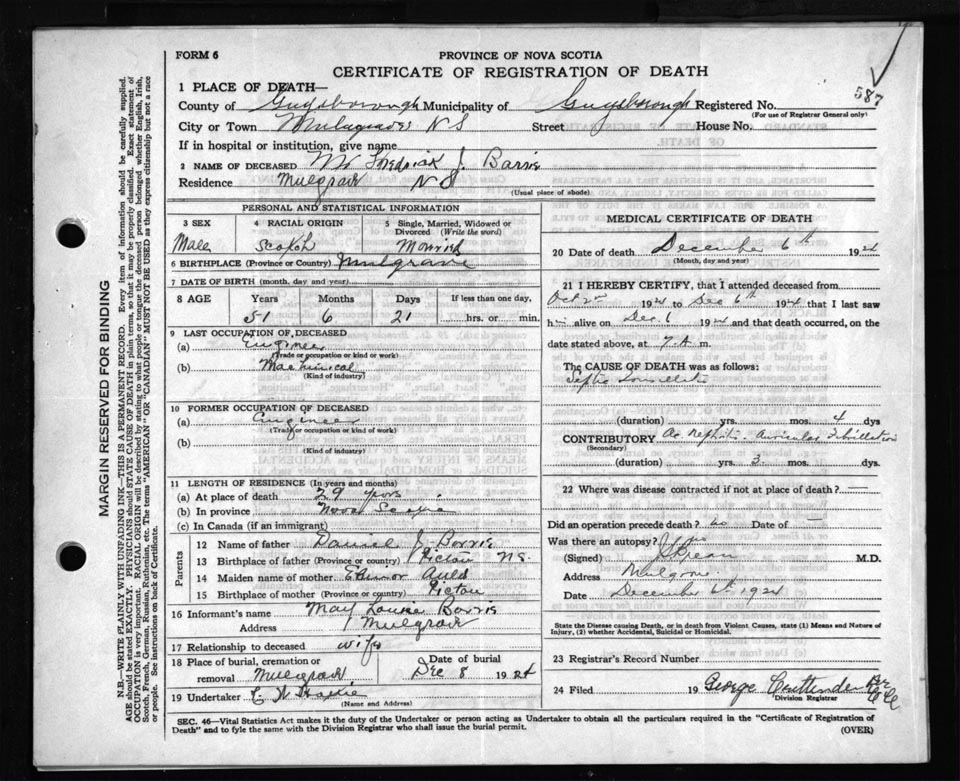 FORM 6
PROVINCE OF NOVA SCOTIA
CERTIFICATE OF REGISTRATION OF DEATH
587
1 PLACE OF DEATH—
County of Guysborough Municipality of Guysborough Registered No.
(For use of Registrar General only)
City or Town Mulgrave N S Street House No.
If in hospital or institution, give name
2 NAME OF DECEASED Mr J. Barris
Residence Mulgrave N S
(Usual place of abode)
PERSONAL AND STATISTICAL INFORMATION
3 SEX 4 RACIAL ORIGIN 5 Single, Married, Widowed or Divorced (Write the word)
Male Scotch Married
6 BIRTHPLACE (Province or Country) Mulgrave
7 DATE OF BIRTH (month, day and year)
8 AGE Years Months Days If less than one day,
51 6 21 hrs. or min.
9 LAST OCCUPATION OF DECEASED
(a) Engineer
(Trade or occupation or kind or work)
(b) Machinical
(Kind of industry)
10 FORMER OCCUPATION OF DECEASED
(a) Engineer
(Trade or occupation or kind of work)
(b)
(Kind of industry)
11 LENGTH OF RESIDENCE (In Years and months)
(a) At place of death 29 years
(b) In province Nova Scotia
(c) In Canada (if an immigrant)
Parents
12 Name of father Daniel J Barris
13 Birthplace of father (Province or country) Pictou N.S.
14 Maiden name of mother Auld
15 Birthplace of mother (Province or country) Pictou
16 Informant's name May Louise Barris
Address Mulgrave
17 Relationship to deceased wife
18 Place of burial, cremation or removal Mulgrave Date of burial Dec 8 1924
19 Undertaker
(Name and Address)
MEDICAL CERTIFICATE OF DEATH
20 Date of death December 6th 1924
(Month, day and year)
21 I HEREBY CERTIFY, that I attended deceased from
Oct 2nd 1924 to Dec 6th 1924 that I last saw
him alive on Dec 6 1924 and that death occurred, on the
date stated above, at 7 A m.
The CAUSE OF DEATH was as follows:
Septic Tonsillitis
(duration) yrs. mos. 4 dys
CONTRIBUTORY Nephritis. Auricular Fibrillation
(Secondary)
(duration) yrs. 3 mos. dys.
22 Where was disease contracted if not at place of death? —
Did an operation precede death? no Date of —
Was there an autopsy? no
(Signed) M.D.
Address Mulgrave
Date December 6th 1924
State the Disease causing Death, or in death from Violent Causes, state (1) Means and Nature of Injury, (2) whether Accidental, Suicidal or Homicidal.
23 Registrar's Record Number
24 Filed 19 George Cruttenden
Division Registrar
SEC. 46—Vital Statistics Act makes it the duty of the Undertaker or person acting as Undertaker to obtain all the particulars required in the "Certificate of Registration of
Death" and to fyle the same with the Division Registrar who shall issue the burial permit.
(OVER)
MARGIN RESERVED FOR BINDING
N.B.—WRITE PLAINLY WITH UNFADING INK—THIS IS A PERMANENT RECORD. Every item of information should be carefully supplied.
AGE should be stated EXACTLY. PHYSICIANS should STATE CAUSE OF DEATH in plain terms, so that it may be properly classified. Exact statement of
OCCUPATION is very important. RACIAL ORIGIN will be described by stating to what people or tongue the deceased person belonged whether English, Irish,
Scotch, French, German, Russian, Ruthenian, etc. The terms "AMERICAN" OR "CANADIAN" MUST NOT BE USED as they express citizenship but not a race
or people. See instructions on back of Certificate.